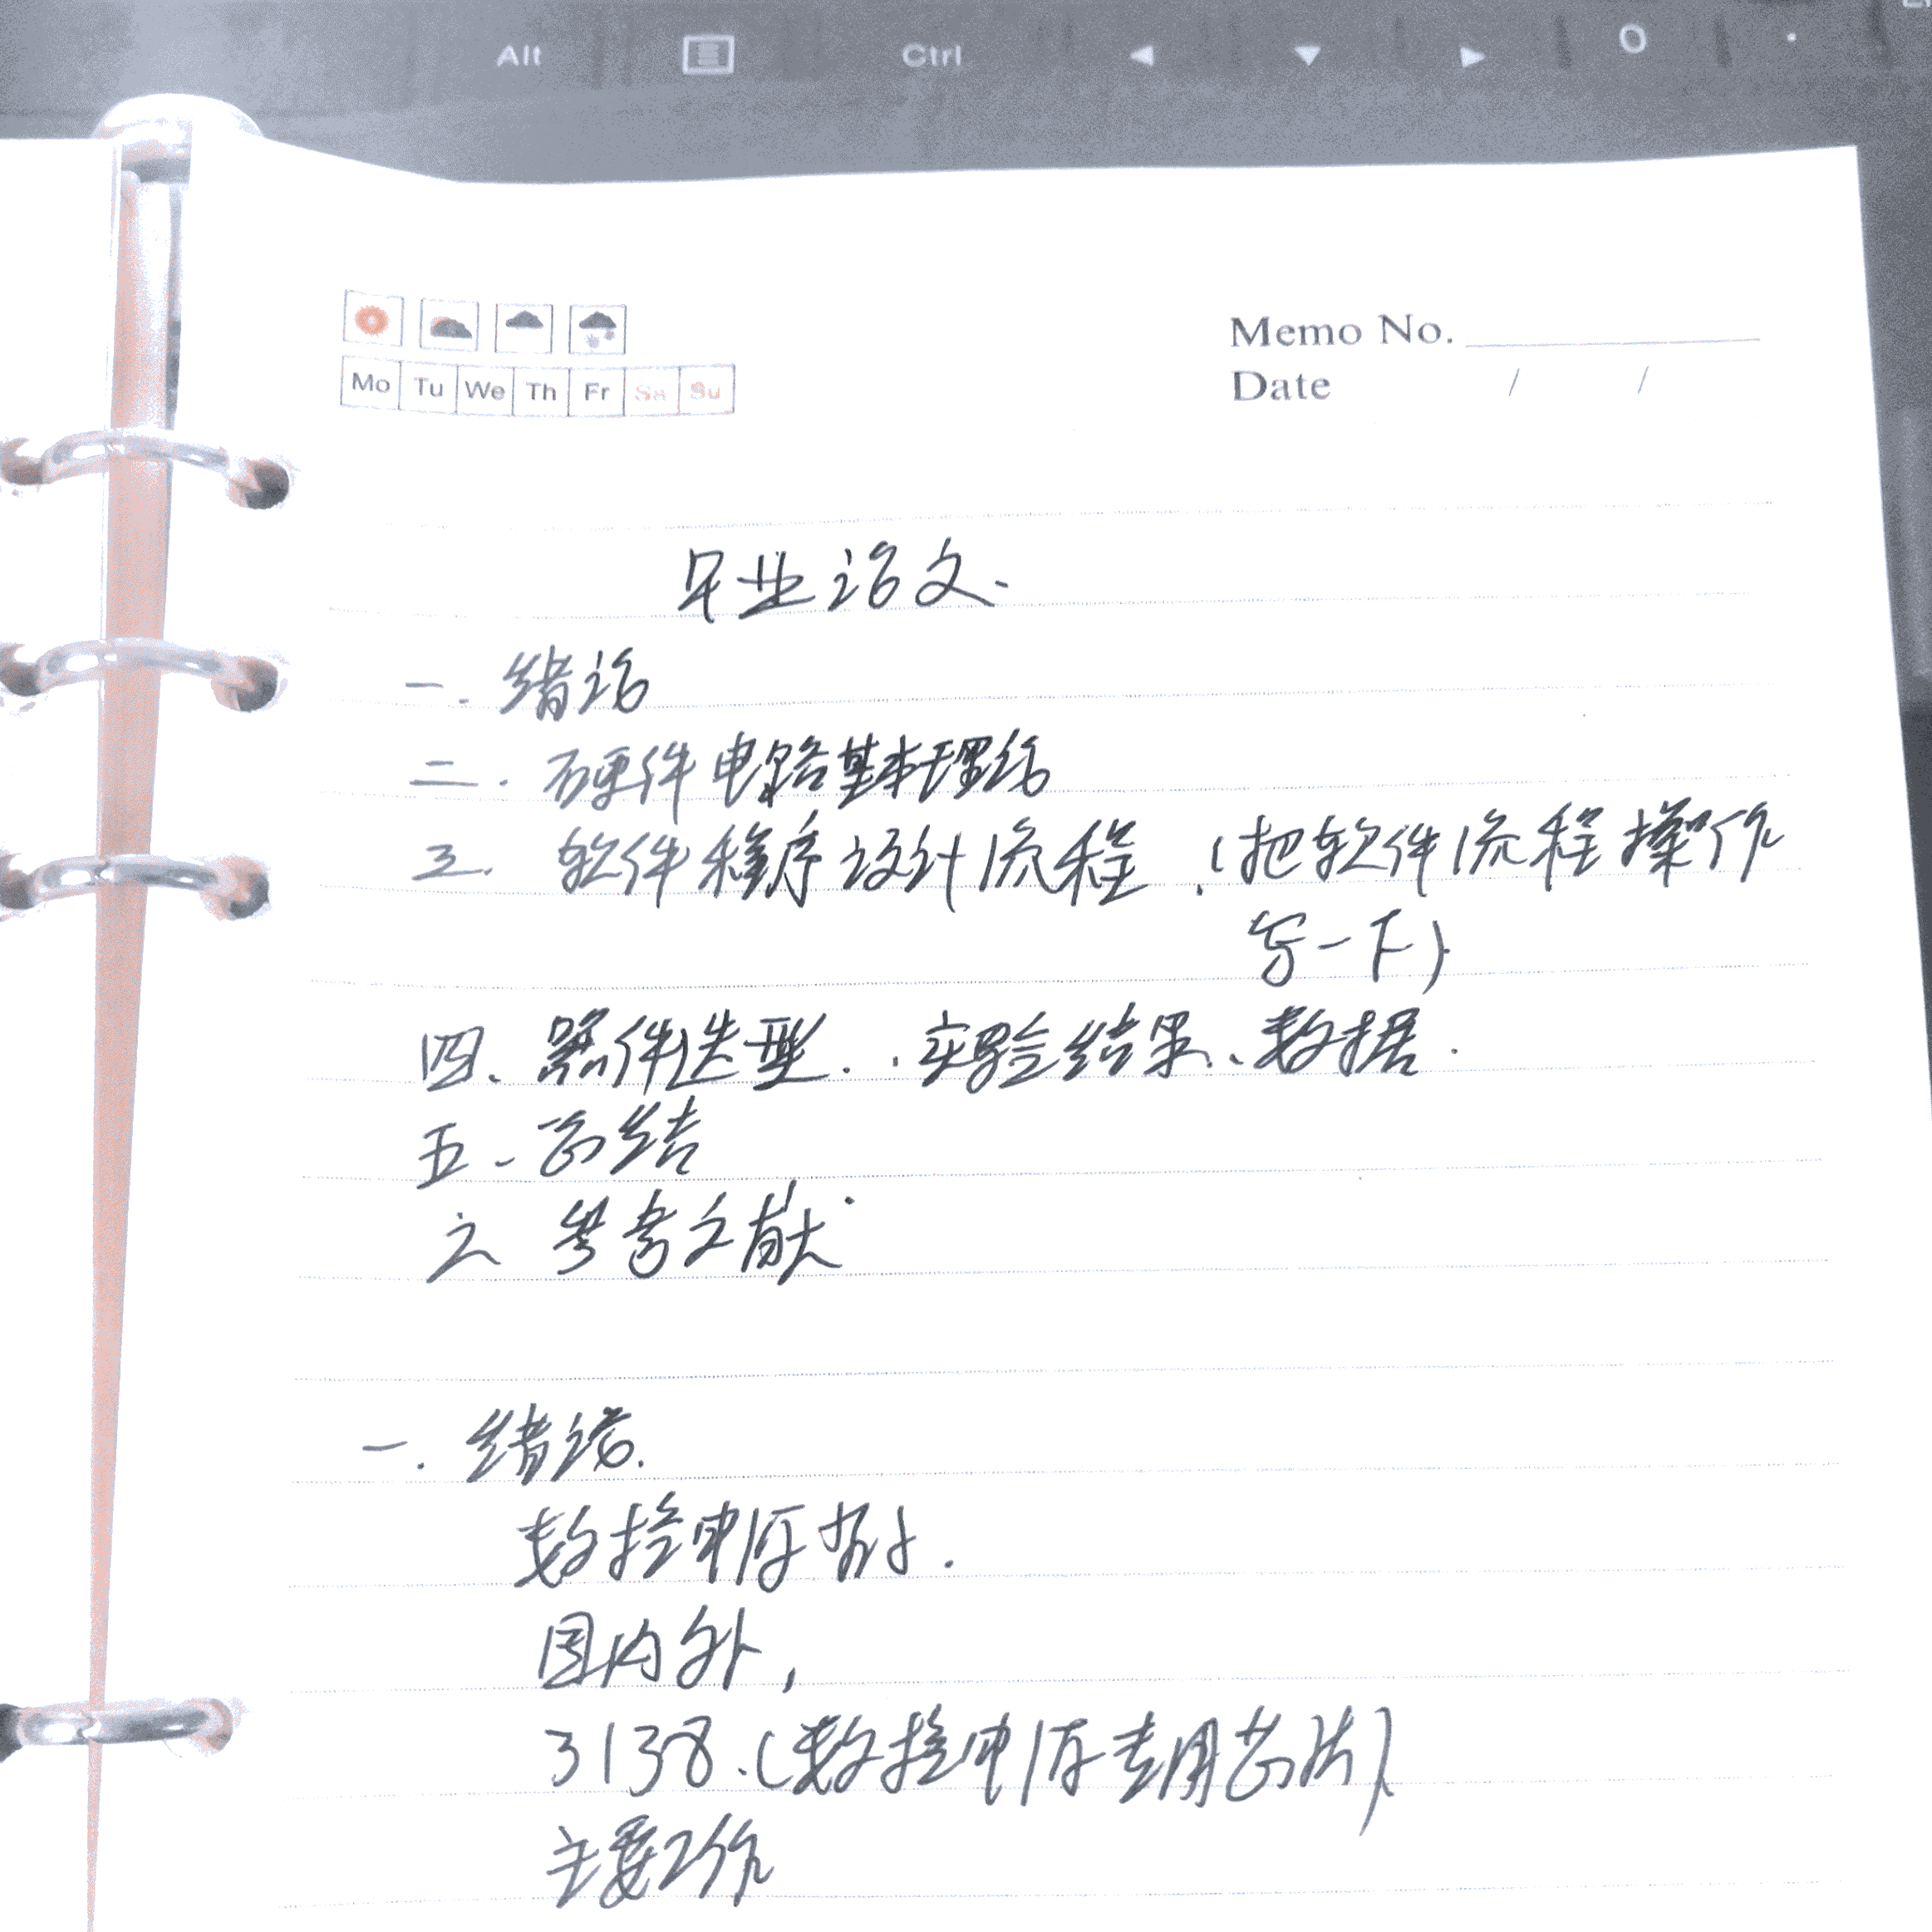 Alt Ctrl ◀ ▼ ▶ 0 .
Memo No.
Mo Tu We Th Fr Sa Su
Date / /
毕业论文.
一. 绪论
二. 硬件电路基本理论
三. 软件程序设计流程.(把软件流程操作
写一下)
四、器件选型.、实验结果、数据.
五、总结
六 参考文献.
一. 绪论.
数控电源
国内外,
3138.(数控电源专用芯片)
主要工作